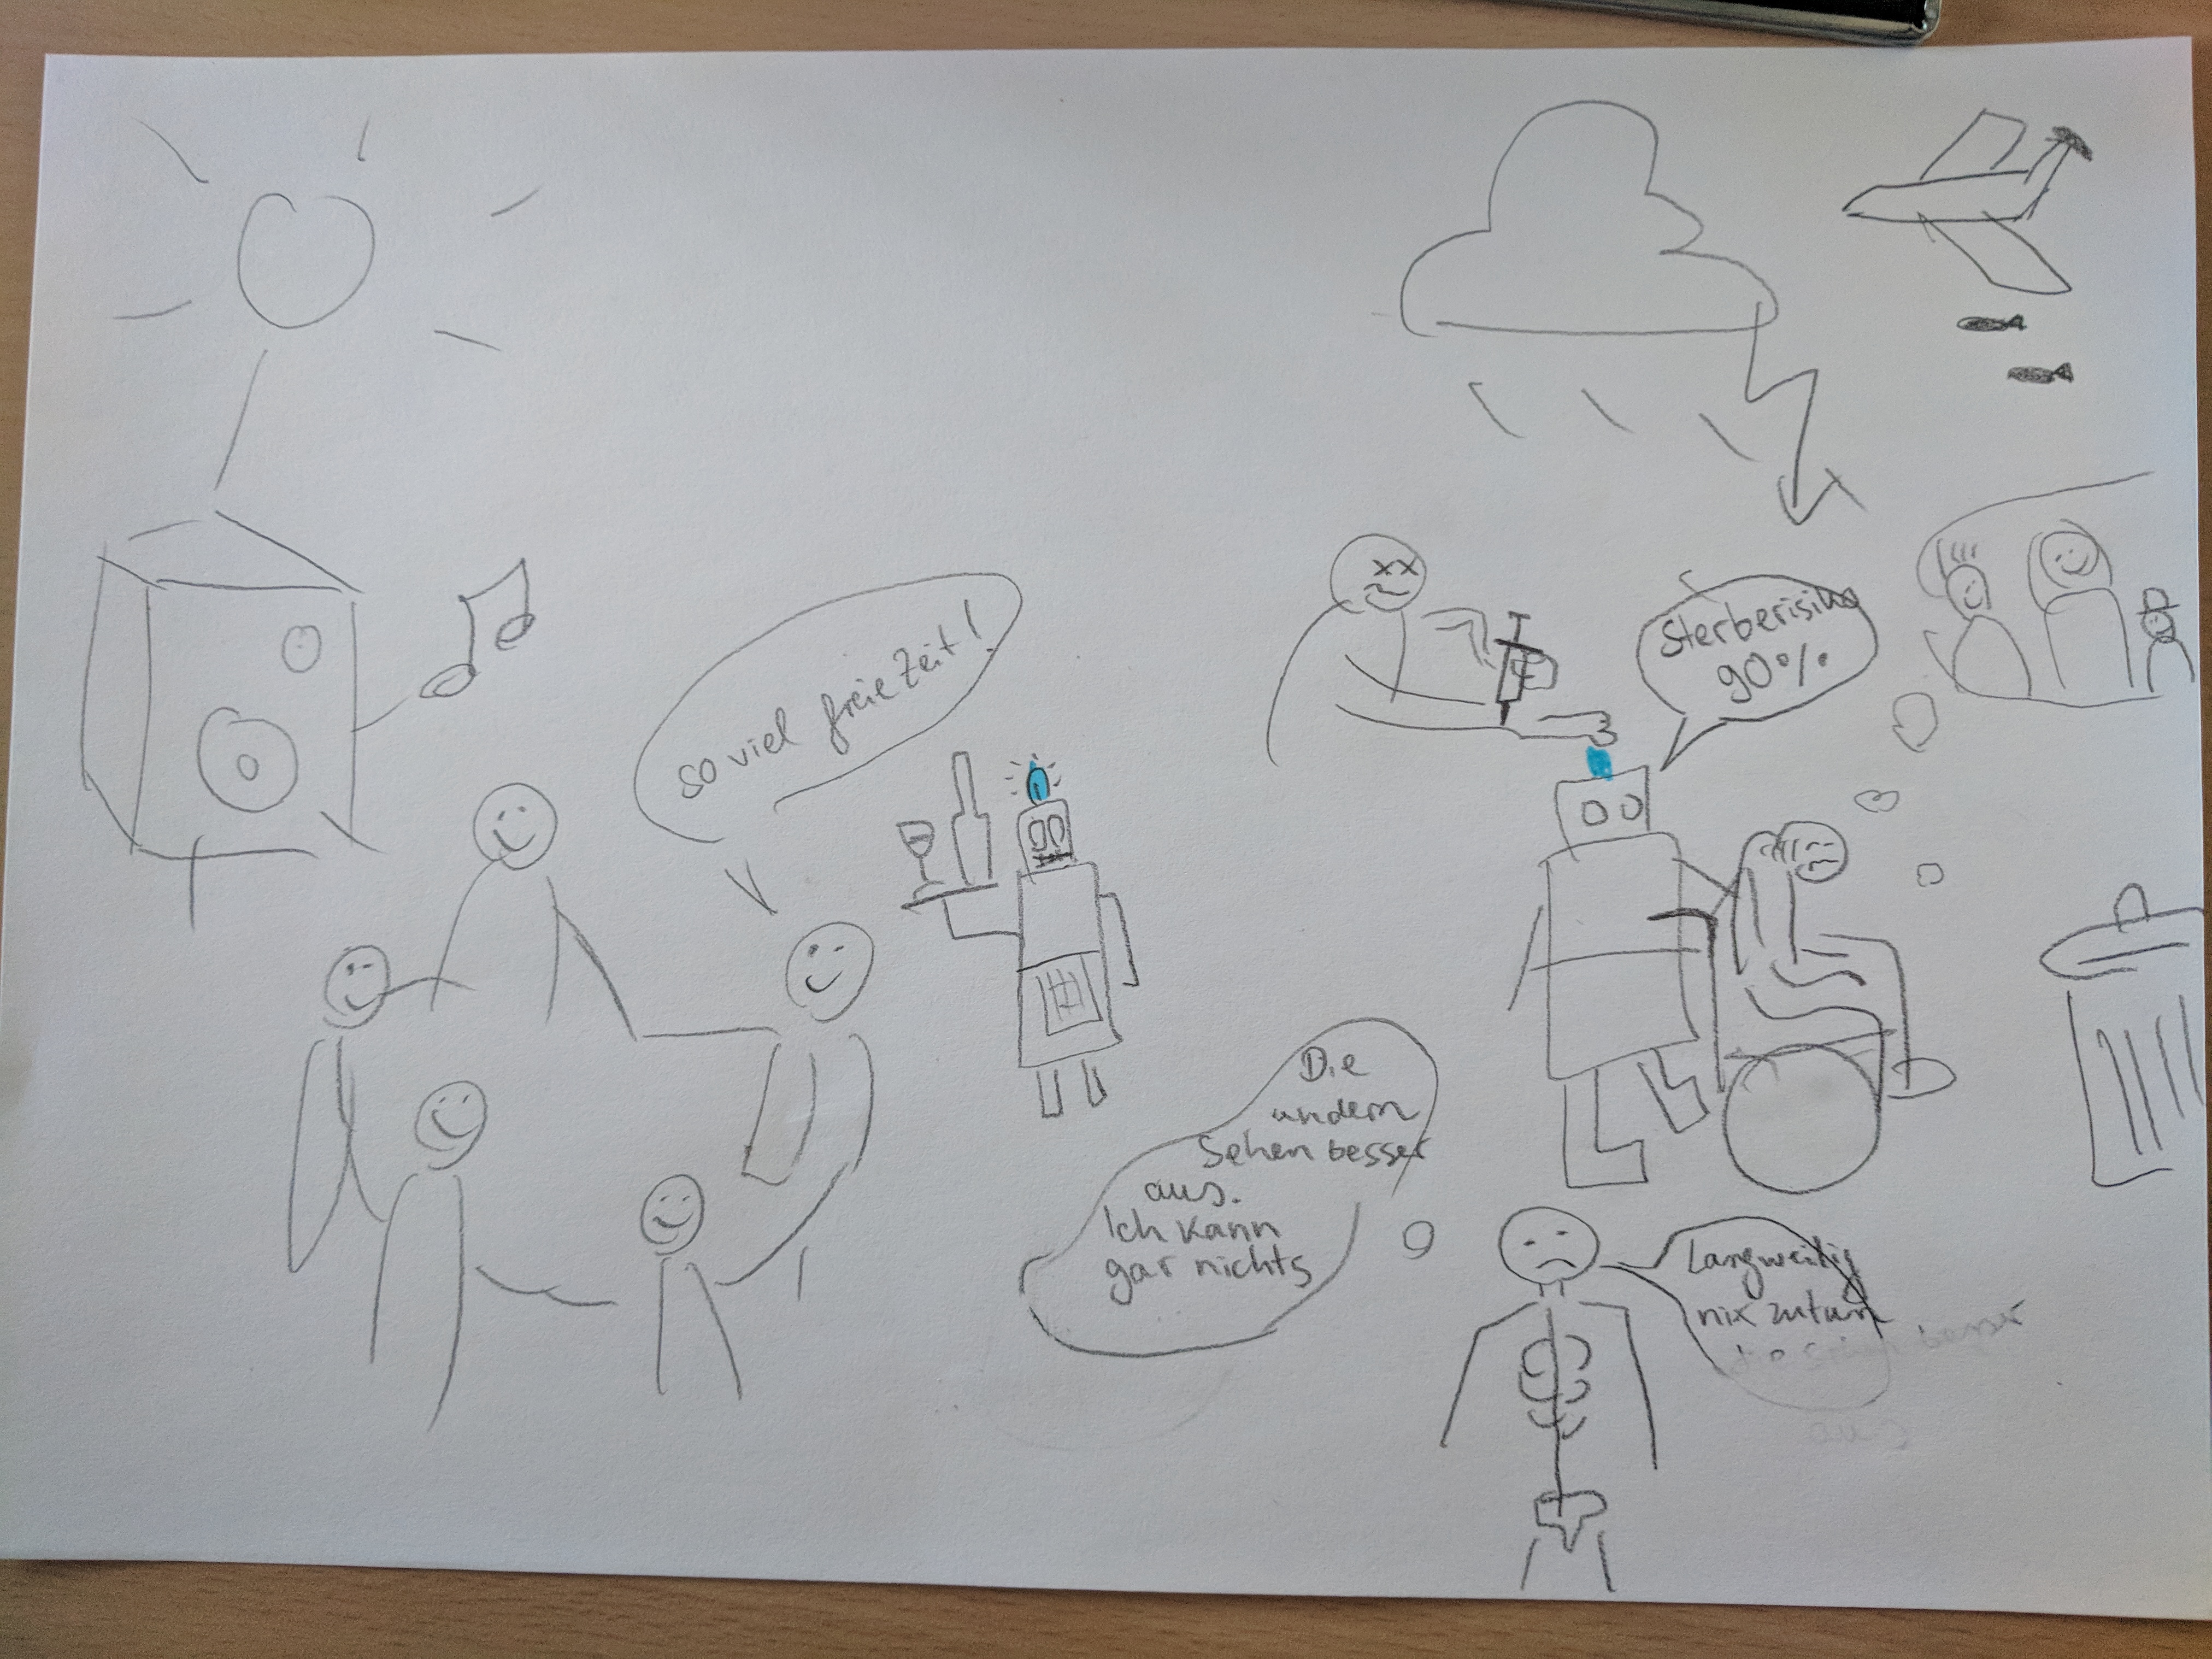 so viel freie Zeit!
Sterberisiko
90%
Die
andern
Sehen besser
aus.
Ich kann
gar nichts
Langweilig
nix zutun
besser
aus